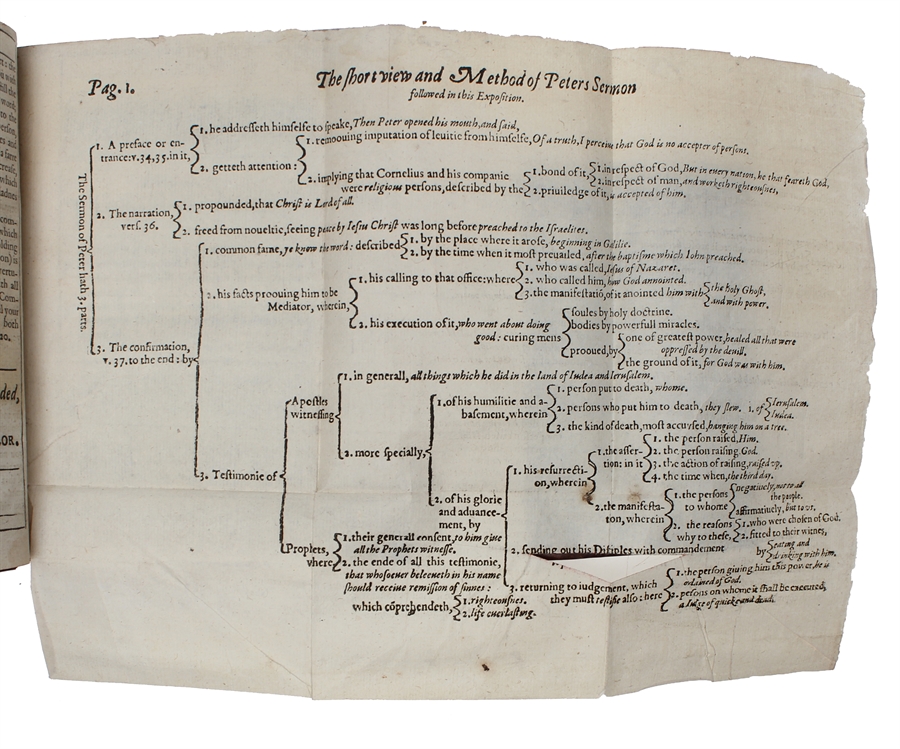 Pag. 1.
The short view and Method of Peters Sermon
followed in this Exposition.
The Sermon of Peter hath 3. parts.
1. A preface or en-
trance: v. 34, 35. in it,
1. he addresseth himselfe to speake, Then Peter opened his mouth, and said,
2. getteth attention:
1. remoouing imputation of leuitie from himselfe, Of a truth, I perceiue that God is no accepter of persons.
2. implying that Cornelius and his companie
were religious persons, described by the
1. bond of it,
1. in respect of God, But in euery nation, he that feareth God,
2. in respect of man, and worketh righteousnes,
2. priuiledge of it, is accepted of him.
2. The narration,
vers. 36.
1. propounded, that Christ is Lord of all.
2. freed from noueltie, seeing peace by Iesus Christ was long before preached to the Israelites.
3. The confirmation,
v. 37. to the end: by
1. common fame, ye know the word: described
1. by the place where it arose, beginning in Galilie.
2. by the time when it most preuailed, after the baptisme which Iohn preached.
2. his facts proouing him to be
Mediator, wherein,
1. his calling to that office: where
1. who was called, Iesus of Nazaret.
2. who called him, how God annointed.
3. the manifestatiō, of it anointed him with
the holy Ghost,
and with power.
2. his execution of it, who went about doing
good: curing mens
soules by holy doctrine.
bodies by powerfull miracles.
prooued, by
one of greatest power, healed all that were
oppressed by the deuill.
the ground of it, for God was with him.
3. Testimonie of
Apostles
witnessing
1. in generall, all things which he did in the land of Iudea and Ierusalem.
2. more specially,
1. of his humilitie and a-
basement, wherein
1. person put to death, whome.
2. persons who put him to death, they slew. i. of
Ierusalem.
Iudea.
3. the kind of death, most accursed, hanging him on a tree.
2. of his glorie
and aduance-
ment, by
1. his resurrecti-
on, wherein
1. the asser-
tion: in it
1. the person raised, Him.
2. the person raising. God.
3. the action of raising, raised vp.
4. the time when, the third day.
2. the manifesta-
ton, wherein
1. the persons
to whome
negatiuely, not to all
the people.
affirmatiuely, but to vs.
2. the reasons
why to these,
1. who were chosen of God.
2. fitted to their witnes,
2. sending out his Disiples with commandement
by
eating and
drinking with him.
3. returning to iudgement, which
they must testifie also: here
1. the person giuing him this power, he is
ordained of God.
2. persons on whome it shall be executed,
a Iudge of quicke and dead.
Prophets,
where
1. their generall consent, to him giue
all the Prophets witnesse.
2. the ende of all this testimonie,
that whosoeuer beleeueth in his name
should receiue remission of sinnes:
which cōprehendeth,
1. righteousnes.
2. life euerlasting.